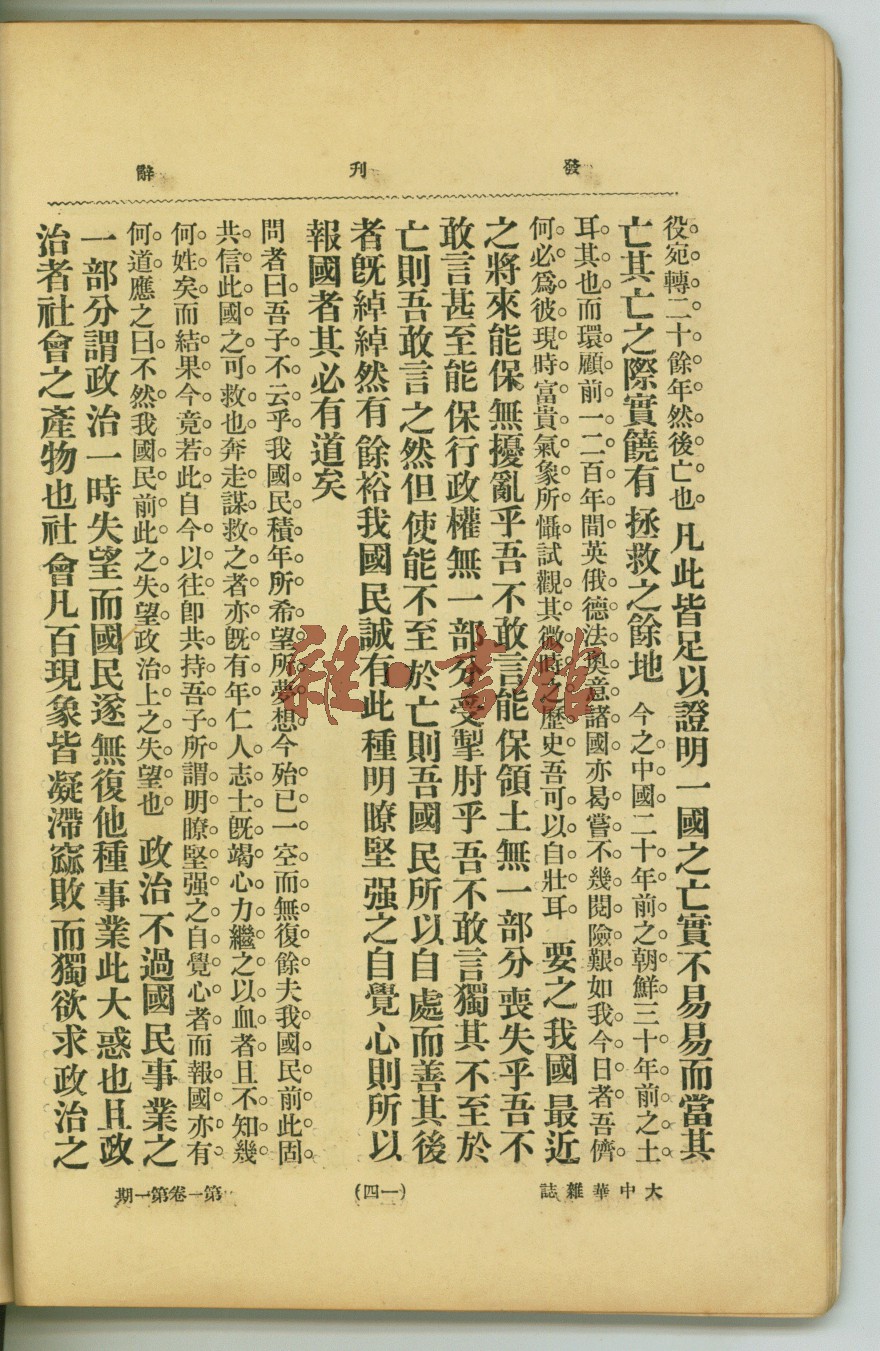 發刊辭
役宛轉二十餘年然後亡也。凡此皆足以證明一國之亡實不易易而當其
亡其亡之際實饒有拯救之餘地 今之中國二十年前之朝鮮三十年前之土
耳其也而環顧前一二百年間英俄德法奧意諸國亦曷嘗不幾閱險艱如我今日者吾儕
何必爲彼現時富貴氣象所懾試觀其微時之歷史吾可以自壯耳。要之我國最近
之將來能保無擾亂乎吾不敢言能保領土無一部分喪失乎吾不
敢言甚至能保行政權無一部分受掣肘乎吾不敢言獨其不至於
亡則吾敢言之然但使能不至於亡則吾國民所以自處而善其後
者旣綽綽然有餘裕我國民誠有此種明瞭堅强之自覺心則所以
報國者其必有道矣
問者曰吾子不云乎我國民積年所希望所夢想今殆已一空而無復餘夫我國民前此固
共信此國之可救也奔走謀救之者亦旣有年仁人志士旣竭心力繼之以血者且不知幾
何姓矣而結果今竟若此自今以往卽共持吾子所謂明瞭堅强之自覺心者而報國亦有
何道應之曰不然我國民前此之失望政治上之失望也。政治不過國民事業之
一部分謂政治一時失望而國民遂無復他種事業此大惑也且政
治者社會之產物也社會凡百現象皆凝滯窳敗而獨欲求政治之
大中華雜誌
(一四)
第一卷第一期
雜·書館